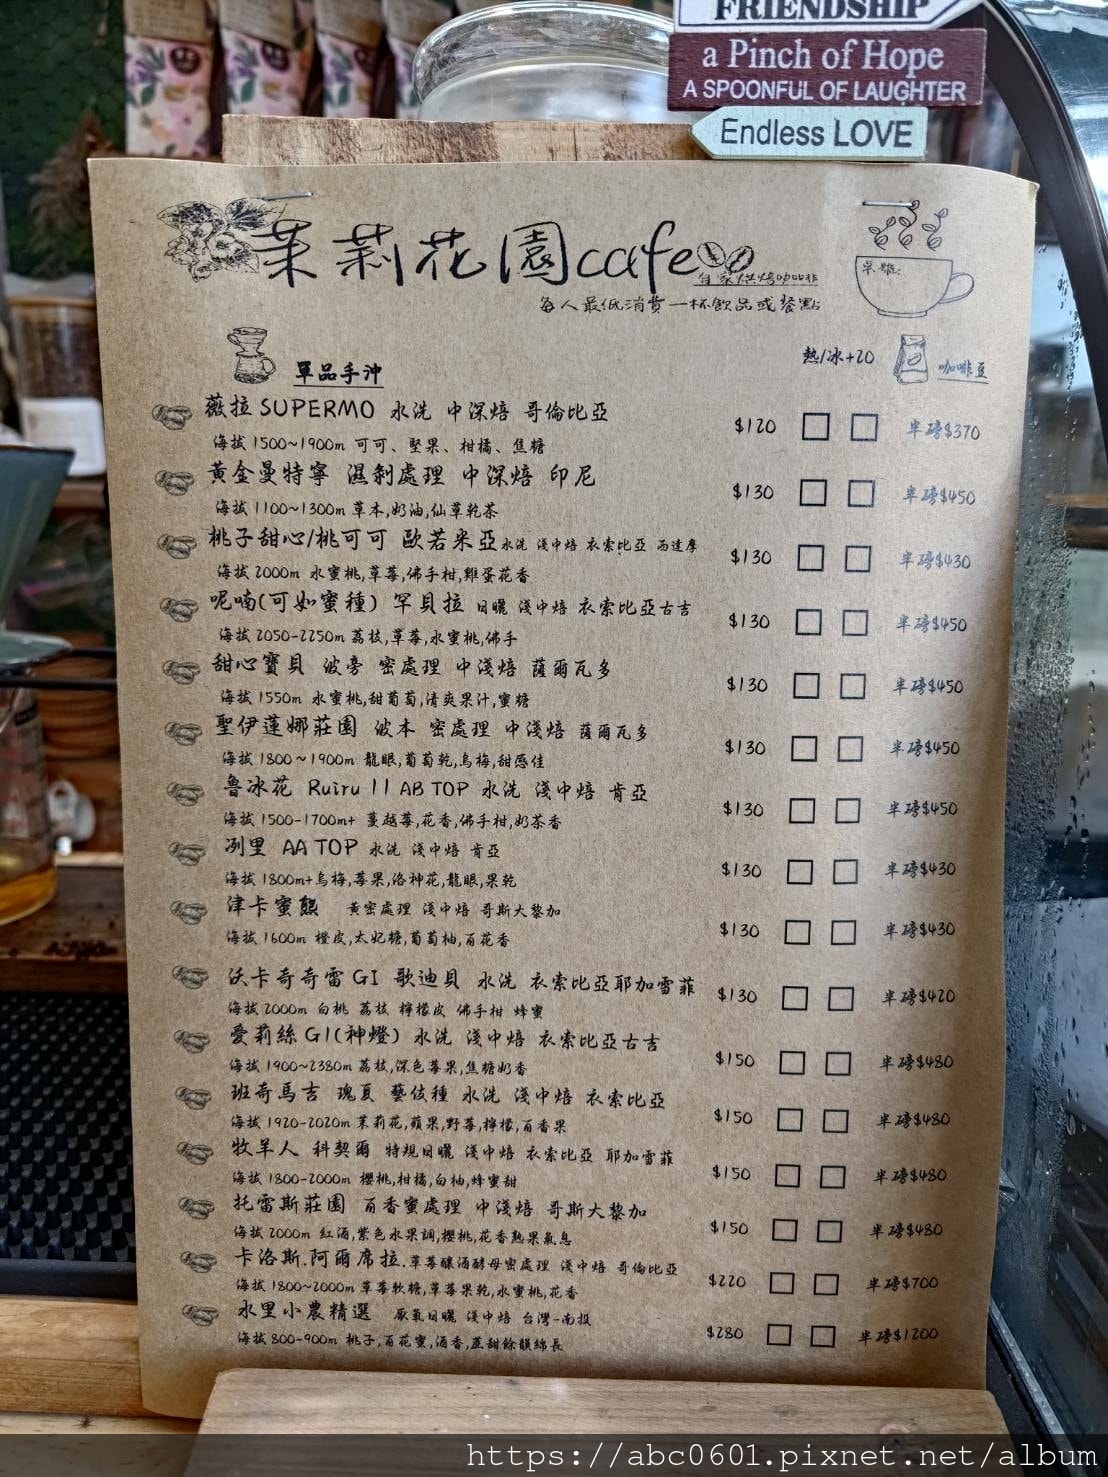 FRIENDSHIP
a Pinch of Hope
A SPOONFUL OF LAUGHTER
Endless LOVE
茉莉花園cafe
自家烘焙咖啡
桌號:
每人最低消費一杯飲品或餐點
單品手沖 熱/冰+20 咖啡豆
薇拉 SUPERMO 水洗 中深焙 哥倫比亞 $120 半磅$370
海拔1500~1900m 可可、堅果、柑橘、焦糖
黃金曼特寧 濕剝處理 中深焙 印尼 $130 半磅$450
海拔1100~1300m 草本,奶油,仙草乾茶
桃子甜心/桃可可 歐若米亞 水洗 淺中焙 衣索比亞 西達摩 $130 半磅$430
海拔2000m 水蜜桃,草莓,佛手柑,雞蛋花香
呢喃(可如蜜種) 罕貝拉 日曬 淺中焙 衣索比亞古吉 $130 半磅$450
海拔2050-2250m 荔枝,草莓,水蜜桃,佛手
甜心寶貝 波旁 密處理 中淺焙 薩爾瓦多 $130 半磅$450
海拔1550m 水蜜桃,甜葡萄,清爽果汁,蜜糖
聖伊蓮娜莊園 波本 密處理 中淺焙 薩爾瓦多 $130 半磅$450
海拔1800~1900m 龍眼,葡萄乾,烏梅,甜感佳
魯冰花 Ruiru 11 AB TOP 水洗 淺中焙 肯亞 $130 半磅$450
海拔1500-1700m+ 蔓越莓,花香,佛手柑,奶茶香
冽里 AA TOP 水洗 淺中焙 肯亞 $130 半磅$430
海拔1800m+烏梅,莓果,洛神花,龍眼,果乾
津卡蜜熊 黃密處理 淺中焙 哥斯大黎加 $130 半磅$430
海拔1600m 橙皮,太妃糖,葡萄柚,百花香
沃卡奇奇雷 G1 歌迪貝 水洗 衣索比亞耶加雪菲 $130 半磅$420
海拔2000m 白桃 荔枝 檸檬皮 佛手柑 蜂蜜
愛莉絲G1(神燈) 水洗 淺中焙 衣索比亞古吉 $150 半磅$480
海拔1900~2380m 荔枝,深色莓果,焦糖奶香
班奇馬吉 瑰夏 藝伎種 水洗 淺中焙 衣索比亞 $150 半磅$480
海拔1920-2020m 茉莉花,蘋果,野莓,檸檬,百香果
牧羊人 科契爾 特規日曬 淺中焙 衣索比亞 耶加雪菲 $150 半磅$480
海拔1800-2000m 櫻桃,柑橘,白柚,蜂蜜甜
托雷斯莊園 百香蜜處理 中淺焙 哥斯大黎加 $150 半磅$480
海拔2000m 紅酒,紫色水果調,櫻桃,花香熟果氣息
卡洛斯.阿爾席拉.草莓釀酒酵母密處理 淺中焙 哥倫比亞 $220 半磅$700
海拔1800~2000m 草莓軟糖,草莓果乾,水蜜桃,花香
水里小農精選 厭氧日曬 淺中焙 台灣-南投 $280 半磅$1200
海拔800-900m 桃子,百花蜜,酒香,蔗甜餘韻綿長
https://abc0601.pixnet.net/album